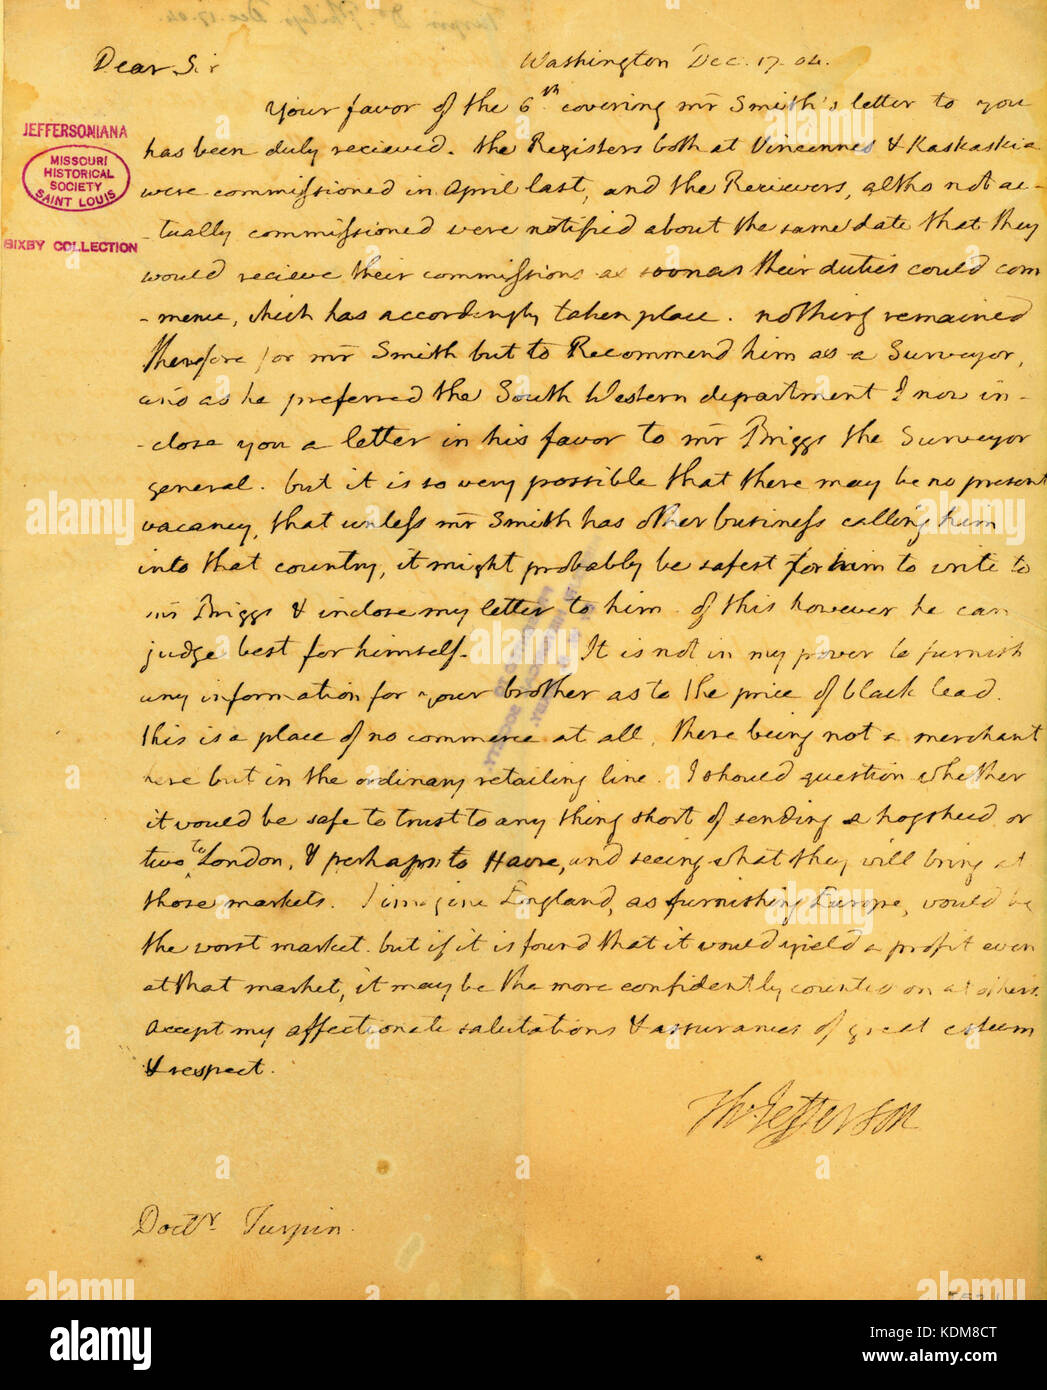 Dear Sir
Washington Dec. 17. 04.
Your favor of the 6th covering mr Smith's letter to you
has been duly recieved. the Registers both at Vincennes & Kaskaskia
were commissioned in April last, and the Recievers, altho not ac-
-tually commissioned were notified about the same date that they
would recieve their commissions as soon as their duties could com
-mence, which has accordingly taken place. nothing remained
therefore for mr Smith but to Recommend him as a Surveyor,
and as he preferred the South Western department I now in-
-close you a letter in his favor to mr Briggs the Surveyor
general. but it is so very possible that there may be no present
vacancy, that unless mr Smith has other business calling him
into that country, it might probably be safest for him to write to
mr Briggs & inclose my letter to him. of this however he can
judge best for himself. It is not in my power to furnish
any information for your brother as to the price of black lead.
this is a place of no commerce at all, there being not a merchant
here but in the ordinary retailing line. I should question whether
it would be safe to trust to any thing short of sending a hogshead or
two to London, & perhaps to Havre, and seeing what they will bring at
those markets. I imagine England, as furnishing Europe, would be
the worst market. but if it is found that it would yield a profit even
at that market, it may be the more confidently counted on at others.
Accept my affectionate salutations & assurances of great esteem
& respect.
Th: Jefferson
Doctr. Turpin.
JEFFERSONIANA
MISSOURI
HISTORICAL
SOCIETY
SAINT LOUIS
BIXBY COLLECTION
alamy
Image ID: KDM8CT
www.alamy.com